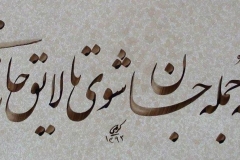 جمله جان شوی تا لایق
۱۳۹۲